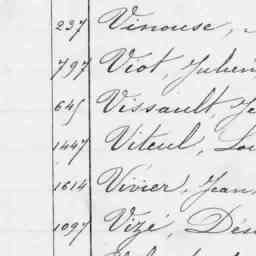 237 Vinouse,
797 Viot, Julien
645 Vissault, Je
1447 Viteul, Lou
1614 Vivier, Jean
1097 Vizé, Dési